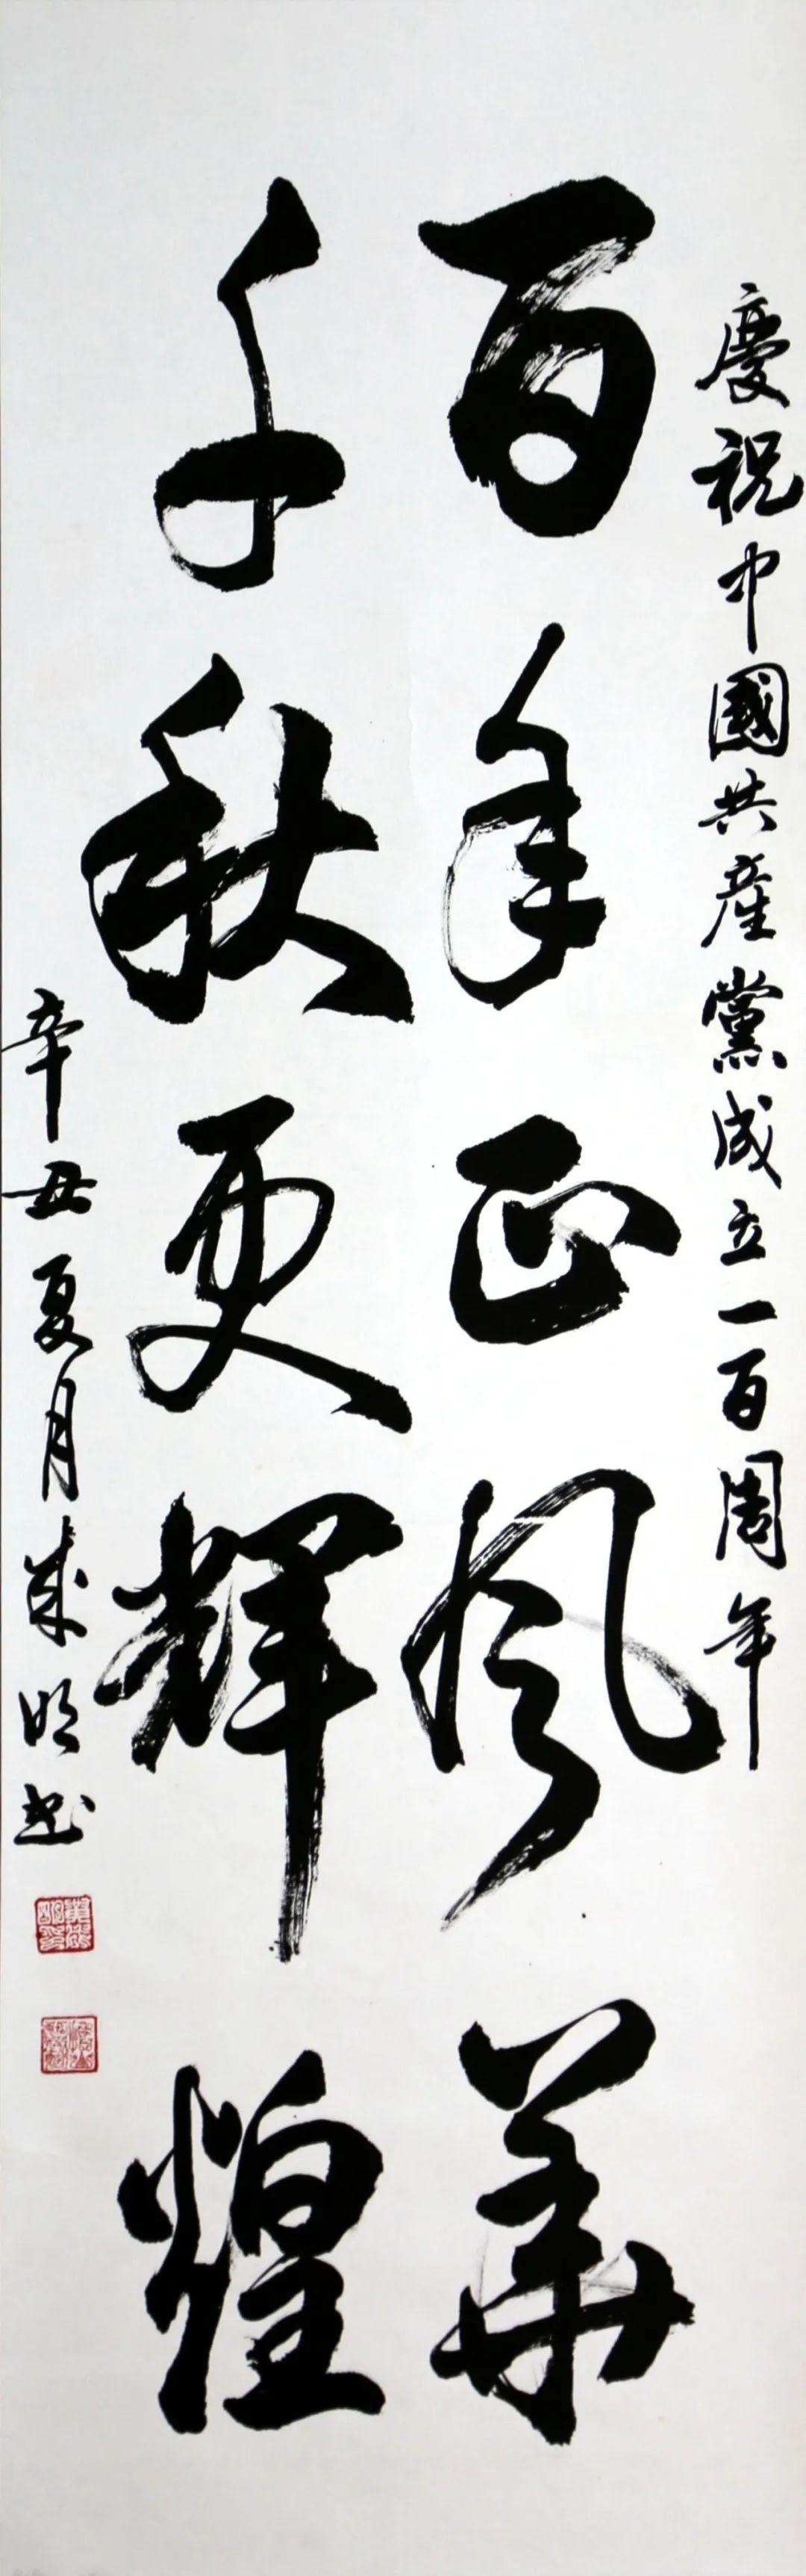 慶祝中國共產黨成立一百周年
百年正風華
千秋更輝煌
辛丑夏月成明书